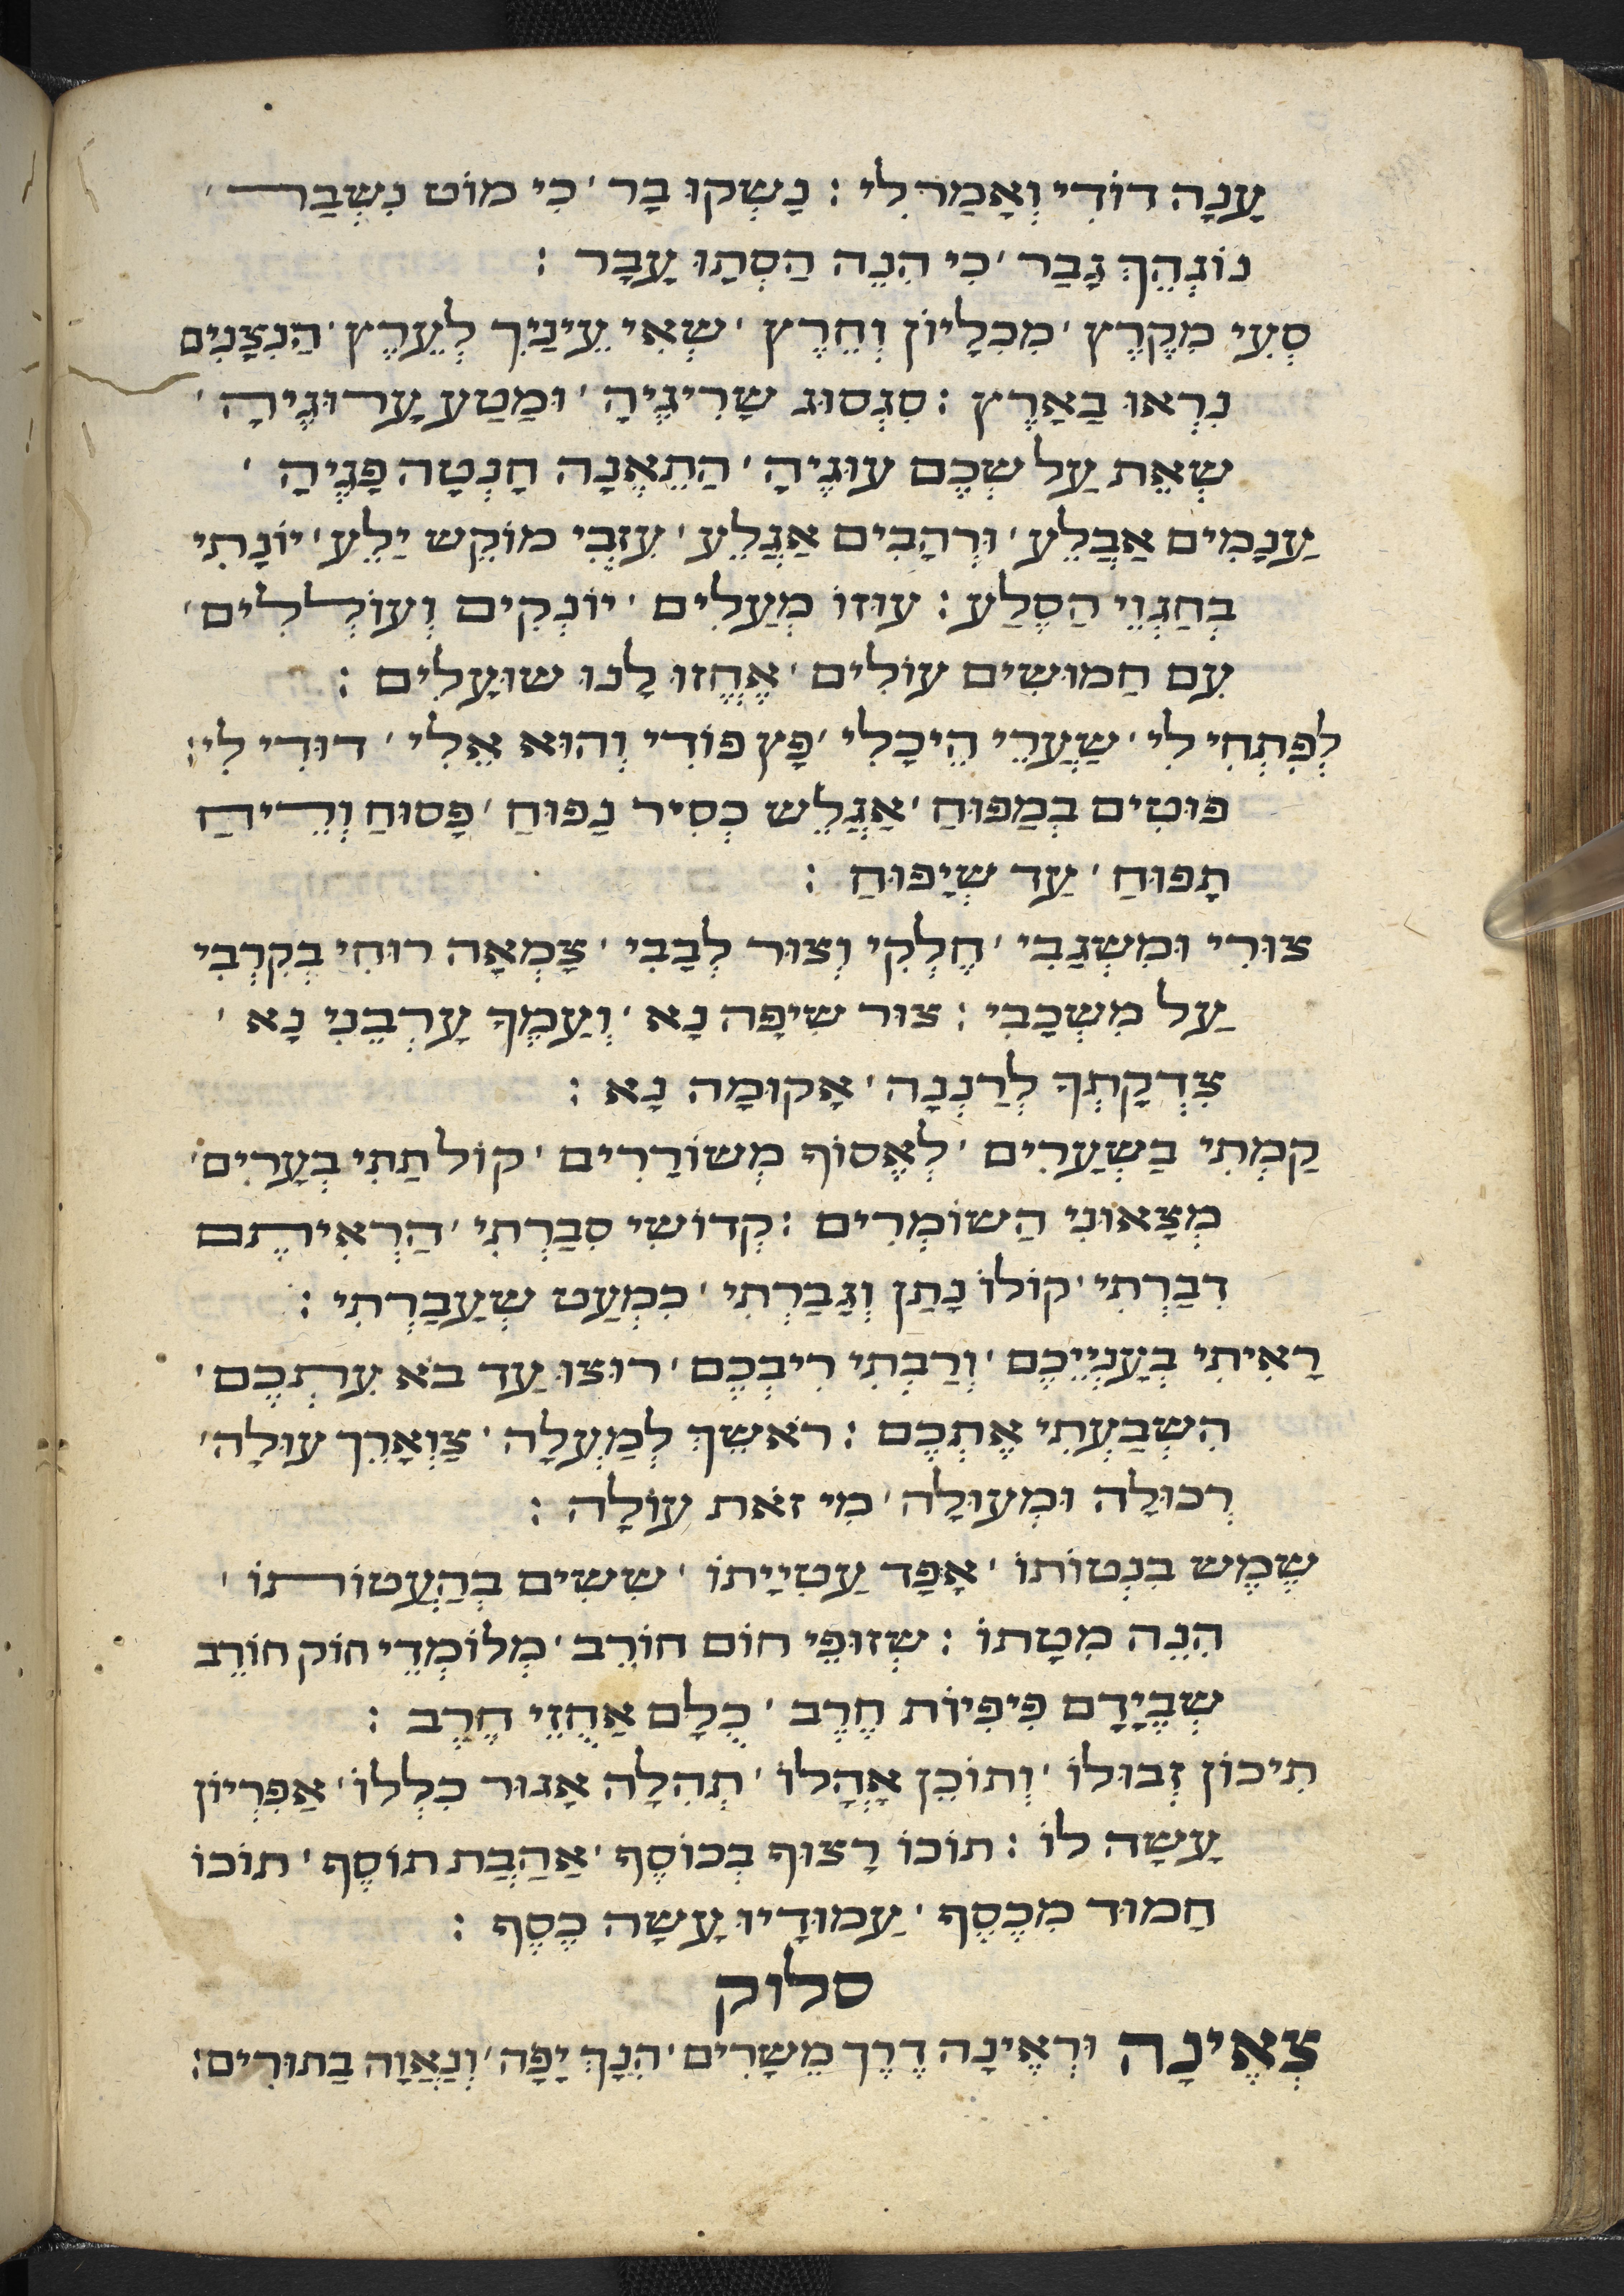 עָנָה דוֹדִי וְאָמַר לִי : נָשְׁקוּ בָר ׳ כִּי מוֹט נִשְׁבַּר ׳
נוֹגְהֵךְ גָּבַר ׳ כִּי הִנֵּה הַסְּתָו עָבָר :
סְעִי מִקֶּרֶץ ׳ מִכִּלָּיוֹן וְחֵרֶץ ׳ שְׂאִי עֵינַיִךְ לְעֵרֶץ ׳ הַנִּצָּנִים
נִרְאוּ בָאָרֶץ : סִגְסוּג שָׂרִיגֶיהָ ׳ וּמַטַּע עֲרוּגֶיהָ ׳
שְׂאֵת עַל שְׁכֶם עוּגֶיהָ ׳ הַתְּאֵנָה חָנְטָה פַגֶּיהָ ׳
עֲנָמִים אֲבַלֵּע ׳ וּרְהָבִים אֲגַלֵּע ׳ עִזְבִי מוֹקֵשׁ יַלֵּע ׳ יוֹנָתִי
בְּחַגְוֵי הַסֶּלַע : עוּזּוֹ מַעֲלִים ׳ יוֹנְקִים וְעוֹלְלִים ׳
עִם חֲמוּשִׁים עוֹלִים ׳ אֶחֱזוּ לָנוּ שׁוּעָלִים :
לְפִתְחִי לִי ׳ שַׁעֲרֵי הֵיכָלִי ׳ פָּץ פּוֹדִי וְהוּא אֵלִי ׳ דּוֹדִי לִי :
פּוּטִים בְּמַפּוּחַ ׳ אֲגַלֵּשׁ כְּסִיר נָפוּחַ ׳ פָּסוֹחַ וְרֵיחַ
תַּפּוּחַ ׳ עַד שֶׁיָּפוּחַ :
צוּרִי וּמִשְׂגַּבִּי ׳ חֶלְקִי וְצוּר לְבָבִי ׳ צָמְאָה רוּחִי בְקִרְבִּי
עַל מִשְׁכָּבִי : צוּר שִׁיפָּה נָא ׳ וְעַמְּךָ עָרְבֵנִי נָא ׳
צִדְקָתְךָ לְרַנְּנָה ׳ אָקוּמָה נָא :
קַמְתִּי בַּשְּׁעָרִים ׳ לֶאֱסוֹף מְשׁוֹרְרִים ׳ קוֹל תַּתִּי בְּעָרִים ׳
מְצָאוּנִי הַשּׁוֹמְרִים : קְדוֹשִׁי סִבַּרְתִּי ׳ הַרְאִיתֶם
דִּבַּרְתִּי ׳ קוֹלוֹ נָתַן וְגָבַרְתִּי ׳ כִּמְעַט שֶׁעָבַרְתִּי :
רָאִיתִי בְּעָנְיֵיכֶם ׳ וְרַבְתִּי רִיבְכֶם ׳ רוּצוּ עַד בֹּא עִתְּכֶם ׳
הִשְׁבַּעְתִּי אֶתְכֶם : רֹאשֵׁךְ לְמַעְלָה ׳ צַוָּארֵךְ עוּלָּה ׳
רְכוּלָּה וּמְעוּלָּה ׳ מִי זֹאת עוֹלָה :
שֶׁמֶשׁ בִּנְטוֹתוֹ ׳ אָפַד עֲטִיָּיתוֹ ׳ שִׁשִּׁים בְּהַעֲטוֹתוֹ ׳
הִנֵּה מִטָּתוֹ : שְׁזוּפֵי חוֹם חוֹרֵב ׳ מְלוּמְּדֵי חוֹק חוֹרֵב
שֶׁבְּיָדָם פִּיפִיּוֹת חֶרֶב ׳ כֻּלָּם אֲחֻזֵי חֶרֶב :
תִּיכּוֹן זְבוּלוֹ ׳ וְתוֹכֶן אָהֳלוֹ ׳ תְּהִלָּה אָגוּר כִּלְלוֹ ׳ אַפִּרְיוֹן
עָשָׂה לוֹ : תּוֹכוֹ רָצוּף בְּכוֹסֶף ׳ אַהֲבַת תּוֹסֶף ׳ תּוֹכוֹ
חָמוּד מִכֶּסֶף ׳ עַמּוּדָיו עָשָׂה כֶסֶף :
סלוק
צְאֶינָה וּרְאֶינָה דֶּרֶךְ מֵשָׁרִים ׳ הִנָּךְ יָפָה ׳ וְנָאוָה בַּתּוֹרִים :